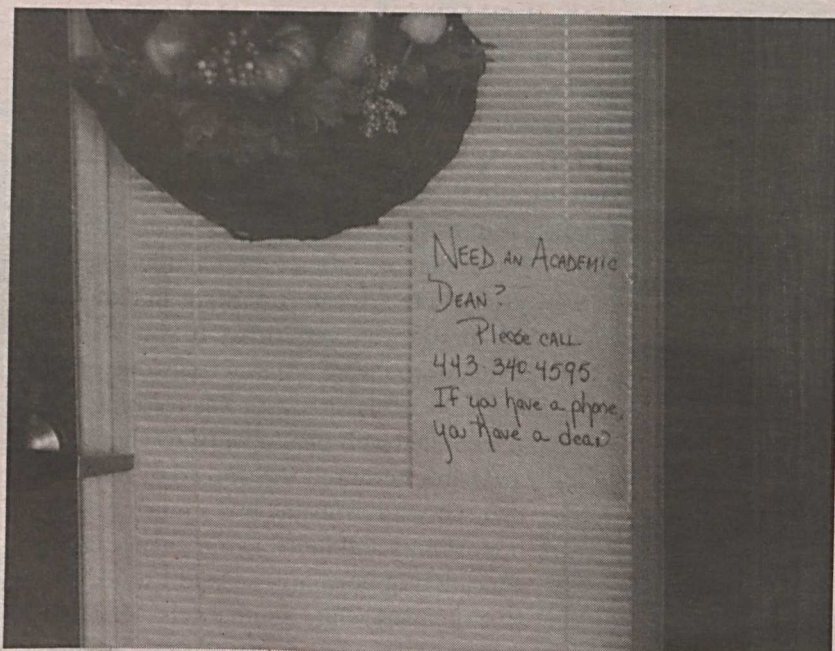 NEED AN ACADEMIC
DEAN?
Please CALL
443 340 4595
If you have a phone,
you have a dean